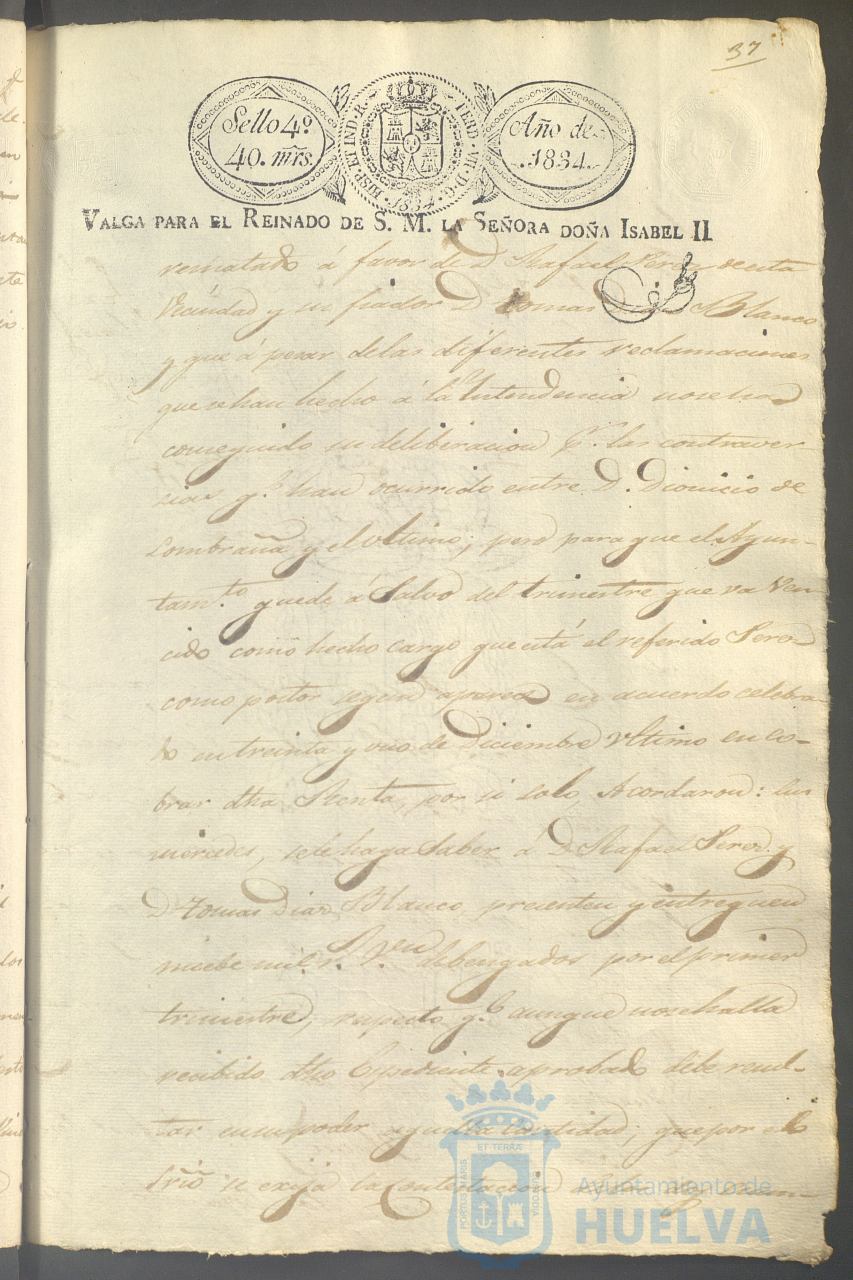 37
Sello 4º
40. mrs.
HISP. ET IND. R. FERD. VII. D. G.
1834
Año de
1834.
VALGA PARA EL REINADO DE S. M. LA SEÑORA DOÑA ISABEL II
rematado á favor de D. Rafael Perez de esta
Vecindad y su fiador D. Tomas Diaz Blanco
y que á pesar de las diferentes reclamaciones
que se han hecho á la Intendencia no se ha
conseguido su deliberacion pr. las contraver-
sias qe. han ocurrido entre D. Dionicio de
Lombraña y el ultimo; pero para que el Ayun-
tamto. quede á Salvo del trimestre que va Ven-
cido como hecho cargo que está el referido Perez
como postor segun aparece en acuerdo celebra-
do en treinta y uno de Diciembre Vltimo en co-
brar dha Renta, por si solo, Acordaron: sus
mercedes, se le haga Saber á D. Rafael Perez y
D. Tomas Diaz Blanco presenten y entreguen
nuebe mil rs. Von debengados por el primer
trimestre, respecto qe. aunque no se halla
recibido dho Expediente aprobado debe resul-
tar en su poder aquella cantidad; que por el
Srio se exija la Contestacion
PORTUS MARIS ET TERRÆ CUSTODIA
Ayuntamiento de
HUELVA